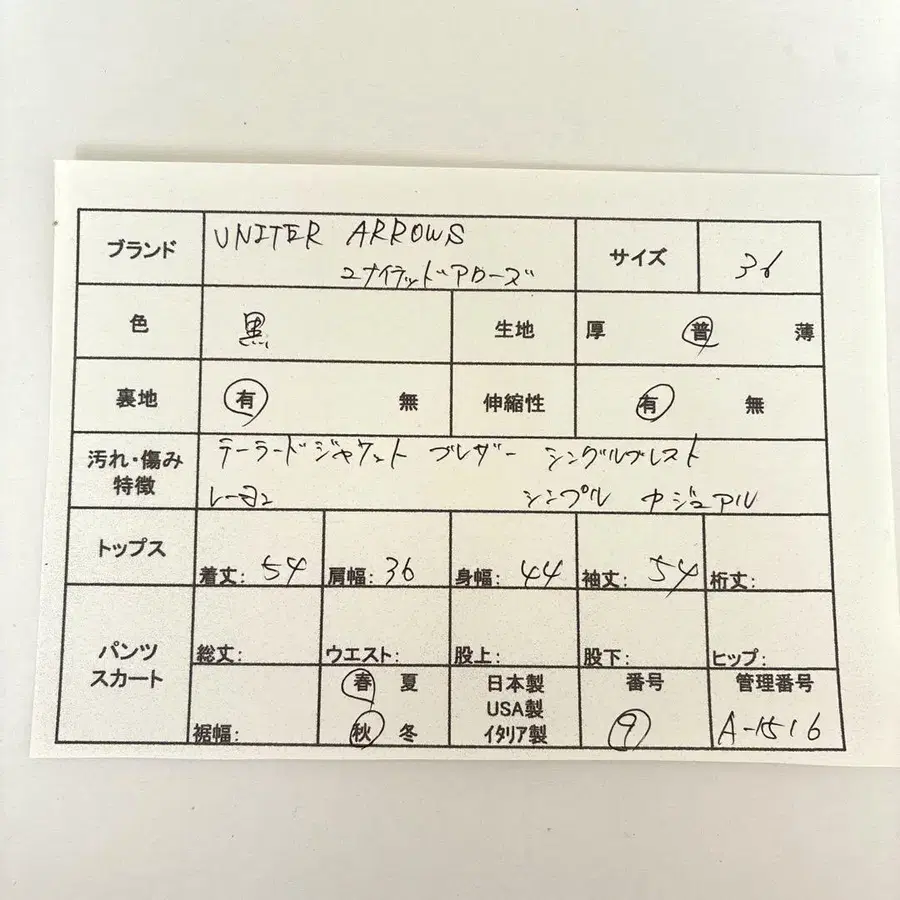 ブランド UNITER ARROWS サイズ 36
ユナイテッドアローズ
色 黒 生地 厚 普 薄
裏地 有 無 伸縮性 有 無
汚れ・傷み テーラードジャケット ブレザー シングルブレスト
特徴 レーヨン シンプル カジュアル
トップス
着丈: 54 肩幅: 36 身幅: 44 袖丈: 54 裄丈:
パンツ
スカート
総丈: ウエスト: 股上: 股下: ヒップ:
春 夏 日本製 番号 管理番号
USA製
裾幅: 秋 冬 イタリア製 9 A-1516